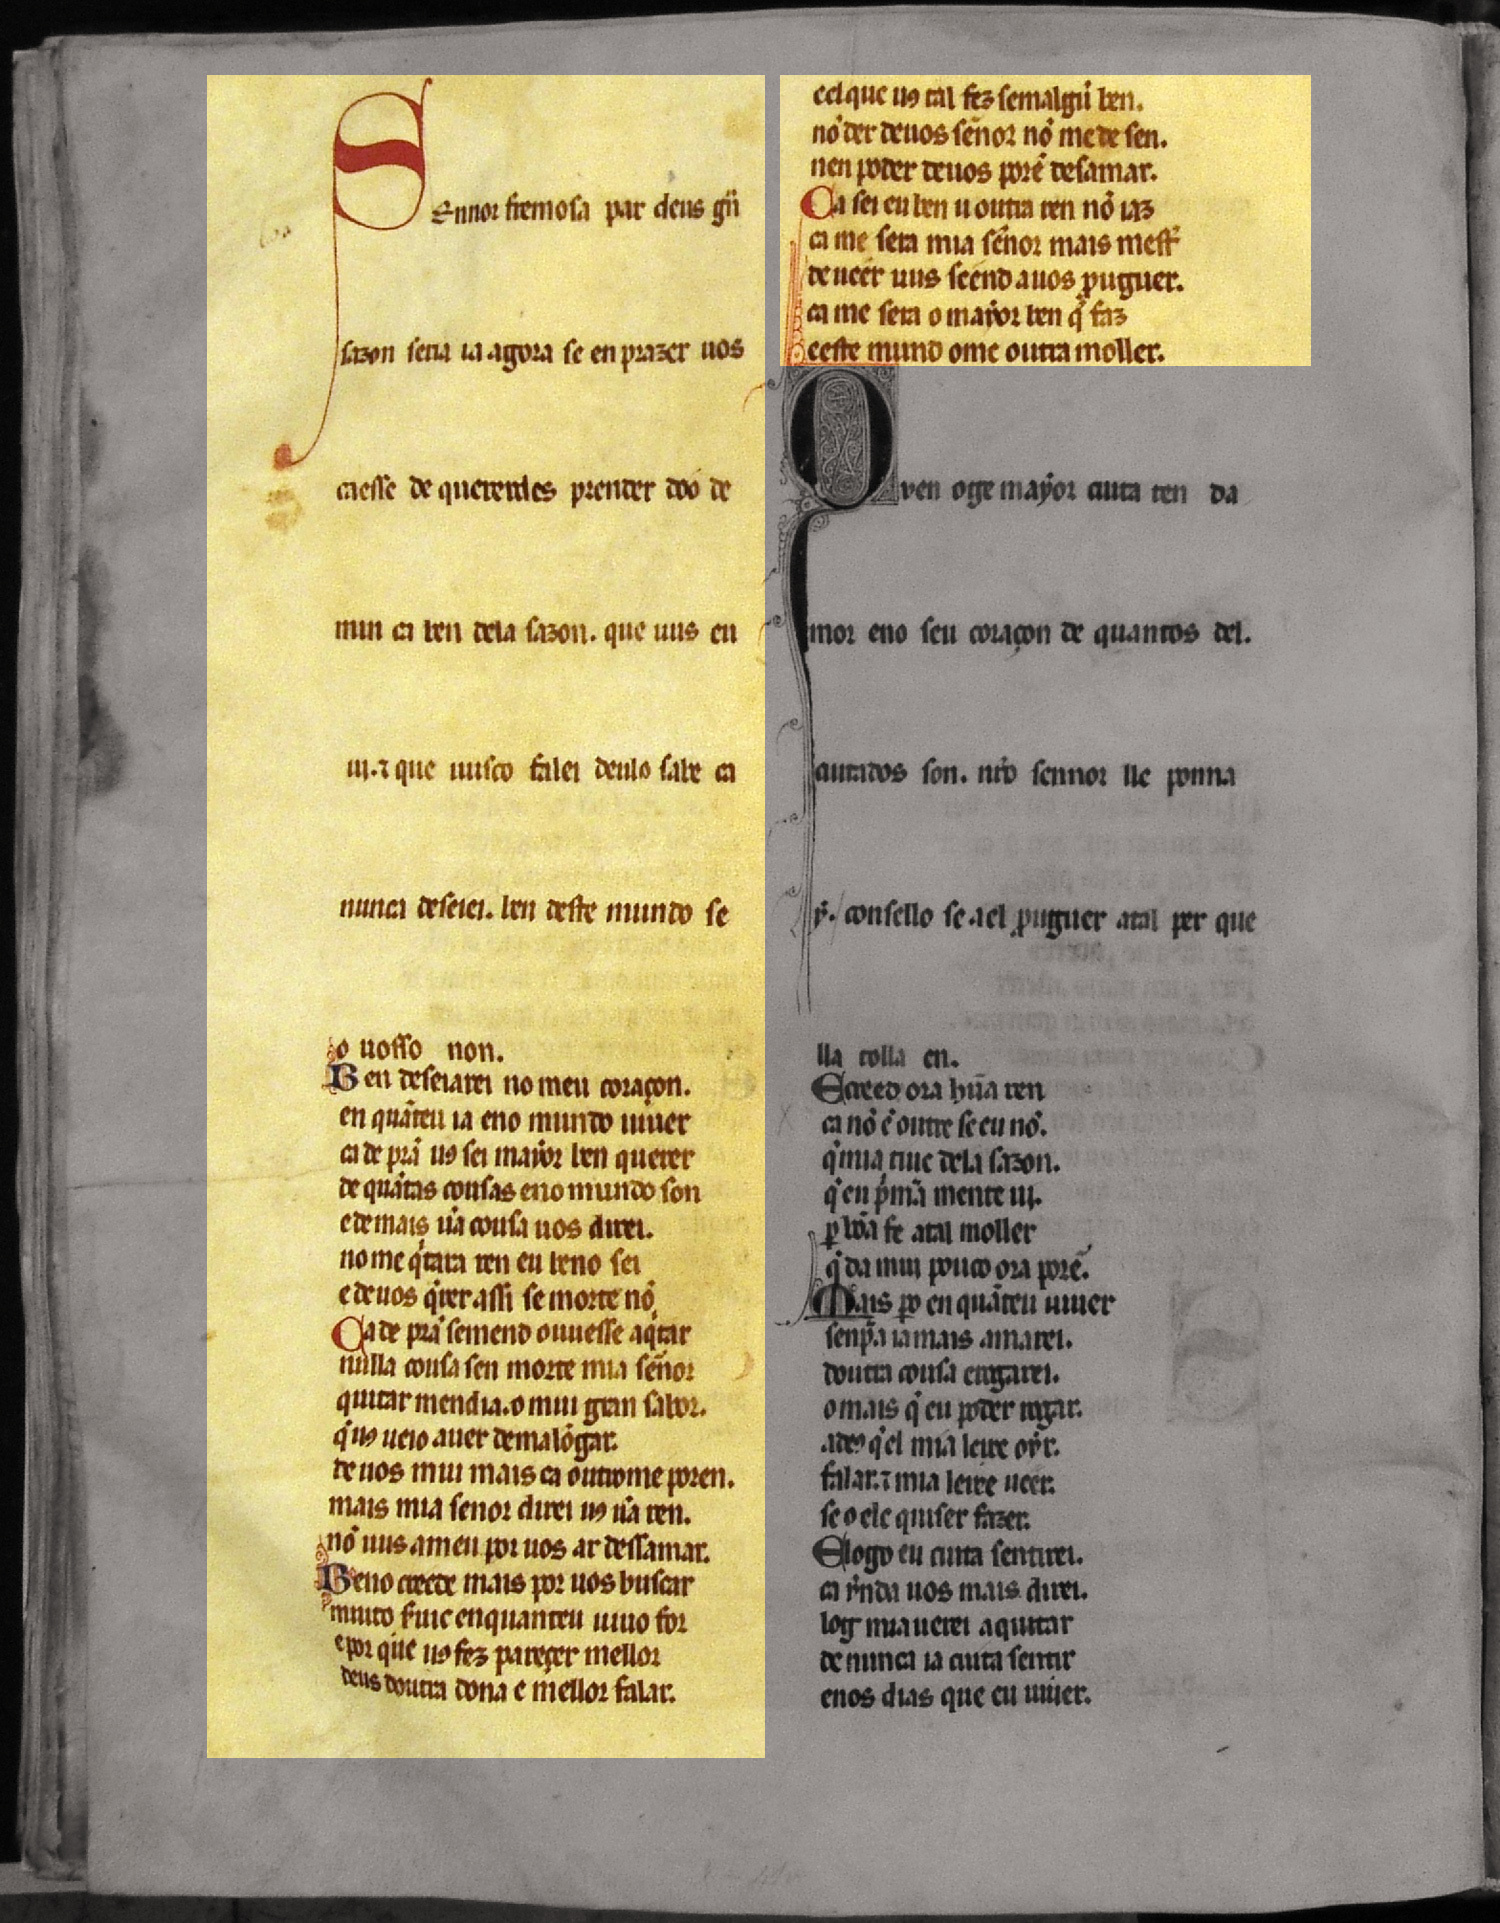 Sennor fremosa par deus gñ
sazon seria ia agora se en prazer uos
caesse de quererdes prender doo de
min ca ben dela sazon. que uus eu
ui. ⁊ que uusco falei deulo sabe ca
nunca deseiei. ben deste mundo se
o uosso non.
Ben deseiarei no meu coraçon.
en quãteu ia eno mundo uiuer
ca de prã uꝯ sei mayor ben querer
de quãtas cousas eno mundo son
e demais ũa cousa uos direi.
no me q̇tara ren eu beno sei
e de uos q̇rer assi se morte nõ
Ca de prã semend ouuesse aq̇tar
nulla cousa sen morte mia señor
quitar mendia. o mui gran sabor.
q̇ uꝯ ueio auer de malõgar.
de uos mui mais ca outrome poren.
mais mia senor direi uꝯ ũa ren.
nõ uus ameu por uos ar dessamar.
Beno creede mais por uos buscar
muito enquanteu uiuo for
e por que uꝯ fez pareçer mellor
deus doutra dona e mellor falar.
eel que uꝯ tal fez semalgũ ben.
nõ der deuos señor nõ mede sen.
nen poder deuos porẽ desamar.
Ca sei eu ben u outra ren nõ iaz
ca me sera mia señor mais mest̃
de ueer uus seend auos ꝓuguer.
ca me sera o mayor ben q̇ faz
eeste mund ome outra moller.
Qven oge mayor cuita ten da
mor eno seu coraçon de quantos del.
cuitados son. nr̃o sennor lle ponna
ẏ. consello se ael ꝓuguer atal per que
lla tolla en.
Ecreed ora hũa ren
ca nõ é outre se eu nõ.
q̇ mia tiue dela sazon.
q̇ eu p̃mã mente ui.
ꝑ bõa fe atal moller
q̇ da mui pouco ora porẽ.
Mais ꝑo en quãteu uiuer
senp̃a iamais amarei.
doutra cousa engarei.
o mais q̇ eu poder rogar.
adeꝯ q̇el mia leixe oyr.
falar. ⁊ mia leixe ueer.
se o ele quiser fazer.
Elogo eu cuita sentirei.
ca ynda uos mais direi.
log mia uerei aquitar
de nunca ia cuita sentir
enos dias que eu uiuer.